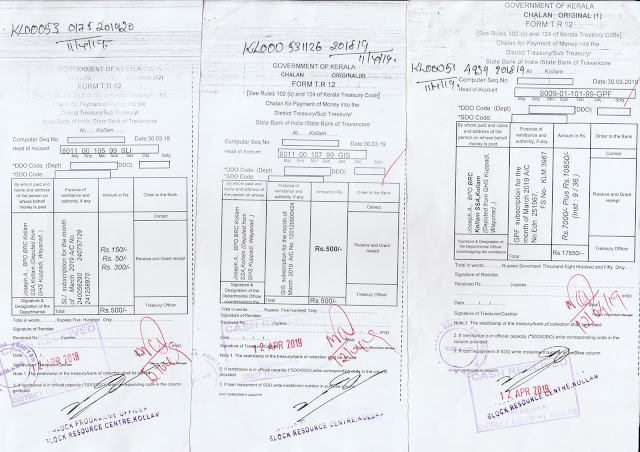 KL00053 0175 201920
11/4/19.
GOVERNMENT OF KERALA
CHALAN ORIGINAL(12)
FORM T.R 12
[See Rules 102 (c) and 124 of Kerala Treasury Code]
Chalan for Payment of Money into the
District Treasury/Sub Treasury/
State Bank of India /State Bank of Travancore
At..... Kollam
Computer Seq.No. Date:30.03.19
Head of Account 8011 00 105 99 SLI
Maj Smj Min Ssh Det Obj Sob
*DDO Code: (Dept) DDO)
*SDO Code:
By whom paid and name and address of the person on whose behalf money is paid
Purpose of remittance and authority, if any
Amount in Rs
Order to the Bank
Correct
Joseph A., BPO BRC Kollam
SSA Kollam (Deputed from
GHS Kuppadi, Wayanad .)
SLI subscription for the month
of March 2019 A/C No.
Rs.150/-
Rs. 50/-
Rs. 300/-
Receive and Grant receipt
Signature & Designation of the Departmental
Total
Rs.500/-
Treasury Officer
Total in words.........Rupees Five Hundred Only
Signature of Remitter
Received Rs.
12 APR 2019
Note 1. The seal/stamp of the treasury/bank of collection shall be affixed
2. If remittance is in official capacity (*SDO/DDO),write corresponding code in the column provided
BLOCK PROGRAMME OFFICER
BLOCK RESOURCE CENTRE,KOLLAM
KL000 531126 201819
11/4/19.
GOVERNMENT OF KERALA
CHALAN ORIGINAL(8)
FORM T.R 12
[See Rules 102 (c) and 124 of Kerala Treasury Code]
Chalan for Payment of Money into the
District Treasury/Sub Treasury/
State Bank of India /State Bank of Travancore
At..... Kollam
Computer Seq.No. Date:30.03.19
Head of Account 8011 00 107 99 GIS
*DDO Code: (Dept) DDO)
*SDO Code:
By whom paid and name and address of the person on whose behalf money is paid
Purpose of remittance and authority, if any
Amount in Rs.
Order to the Bank
Correct
Joseph A., BPO BRC Kollam
SSA,Kollam (Deputed from
GHS Kuppadi, Wayanad .)
GIS subscription for the month of
March 2019 A/C No.
Rs.500/-
Receive and Grant receipt
Signature & Designation of the Departmental Officer
Total
Rs.500/-
Treasury Officer
Total in words.........Rupees Five hundred Only.
Signature of Remitter
Received Rs.
12 APR 2019
Note 1. The seal/stamp of the treasury/bank of collection shall be affixed
2. If remittance is in official capacity (*SDO/DDO),write corresponding code in the column provided
3. If loan repayment of SDO,write installment number in purpose column
BLOCK RESOURCE CENTRE,KOLLAM
KL00053 4939 201819
11/4/19.
GOVERNMENT OF KERALA
CHALAN ORIGINAL (1)
FORM T.R 12
[See Rules 102 (c) and 124 of Kerala Treasury Code]
Chalan for Payment of Money into the
District Treasury/Sub Treasury/
State Bank of India /State Bank of Travancore
At..... Kollam
Computer Seq.No. Date:30.03.2019
Head of Account 8009-01-101-99-GPF
*DDO Code: (Dept) DDO)
*SDO Code:
By whom paid and name and address of the person on whose behalf money is paid
Purpose of remittance and authority, if any
Amount in Rs.
Order to the Bank
Correct
Joseph A., BPO BRC
Kollam SSA,Kollam
(Deputed from GHS Kuppadi,
Wayanad .)
GPF subscription for the
month of March 2019 A/C
No:Edn 251967,
FS No- KLM 3987
Rs.7000/- Plus Rs 10850/-
(Inst : 9 / 36 )
Receive and Grant receipt
Signature & Designation of the Departmental Officer
Total
Rs 17850/-
Treasury Officer
Total in words.........Rupees Seventeen Thousand Eight Hundred and Fifty Only.
Signature of Remitter
Received Rs.
Date
Signature of Treasurer/Cashier
Note 1. The seal/stamp of the treasury/bank of collection shall be affixed
2. If remittance is in official capacity
3. If loan repayment of SDO,write installment number in purpose column
12 APR 2019
BLOCK RESOURCE CENTRE,KOLLAM